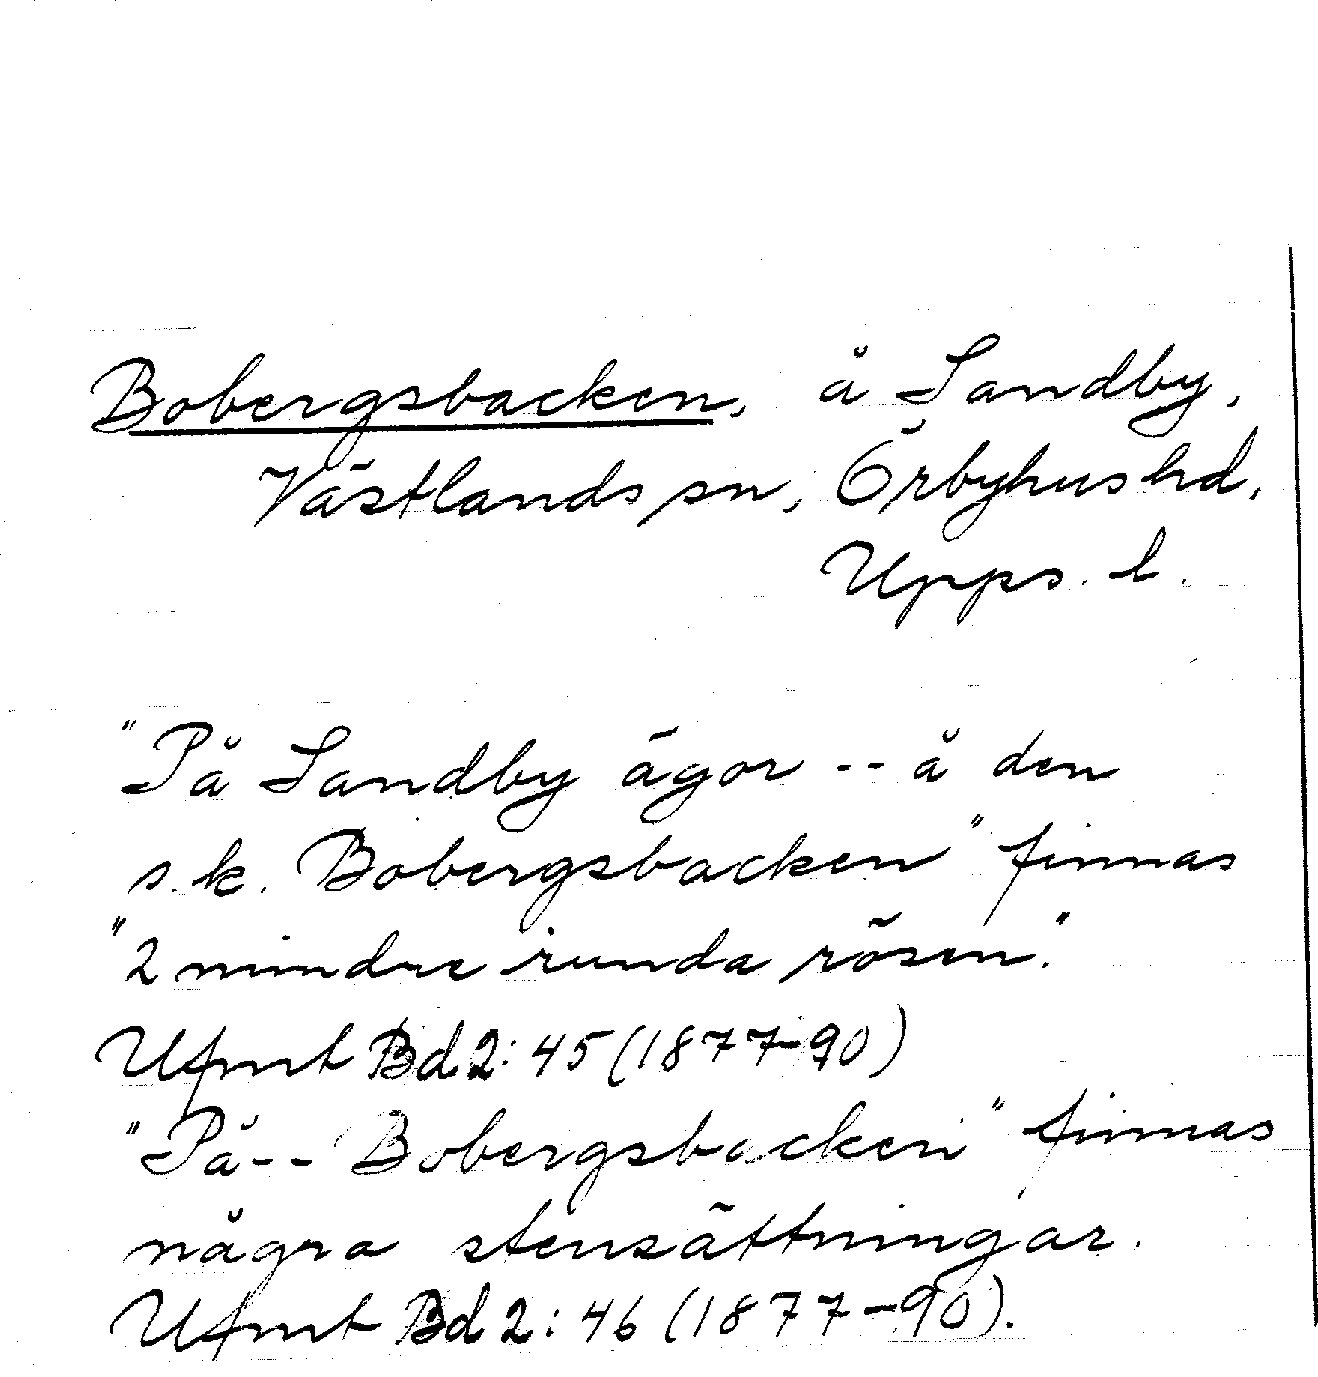 Bobergsbacken, å Sandby,
Västlands sn, Örbyhus hd,
Upps. l.
"På Sandby ägor -- å den
s.k. Bobergsbacken" finnas
"2 mindre runda rösen."
Ufmt Bd 2: 45 (1877-90)
"På -- Bobergsbacken" finnas
några stensättningar.
Ufmt Bd 2: 46 (1877-90).